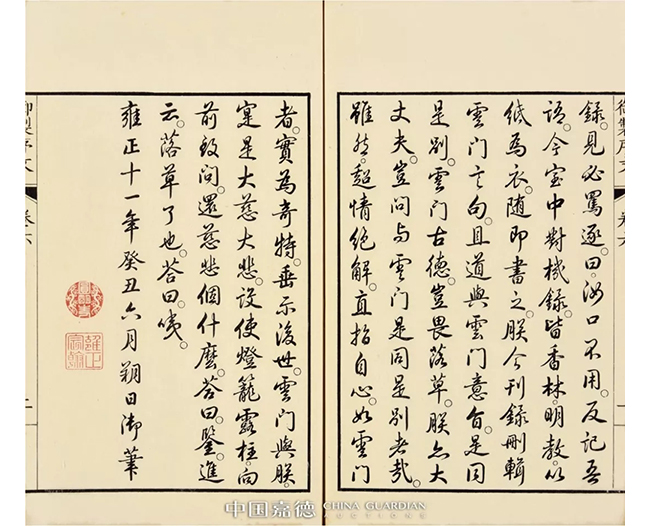 錄。見必罵逐。曰。汝口不用。反記吾
語。今室中對機錄。皆香林明教。以
紙為衣。隨即書之。朕今刊錄刪輯
雲門言句。且道與雲門意旨。是同
是別。雲門古德。豈畏落草。朕亦大
丈夫。豈問與雲門是同是別者哉。
雖然。超情絕解。直指自心。如雲門
者。實為奇特。垂示後世。雲門與朕
寔是大慈大悲。設使燈籠露柱。向
前致問。還慈悲個什麼。答曰。鑒。進
云。落草了也。答曰。咦。
雍正十一年癸丑六月朔日御筆
雍正宸翰
中国嘉德 CHINA GUARDIAN
AUCTIONS